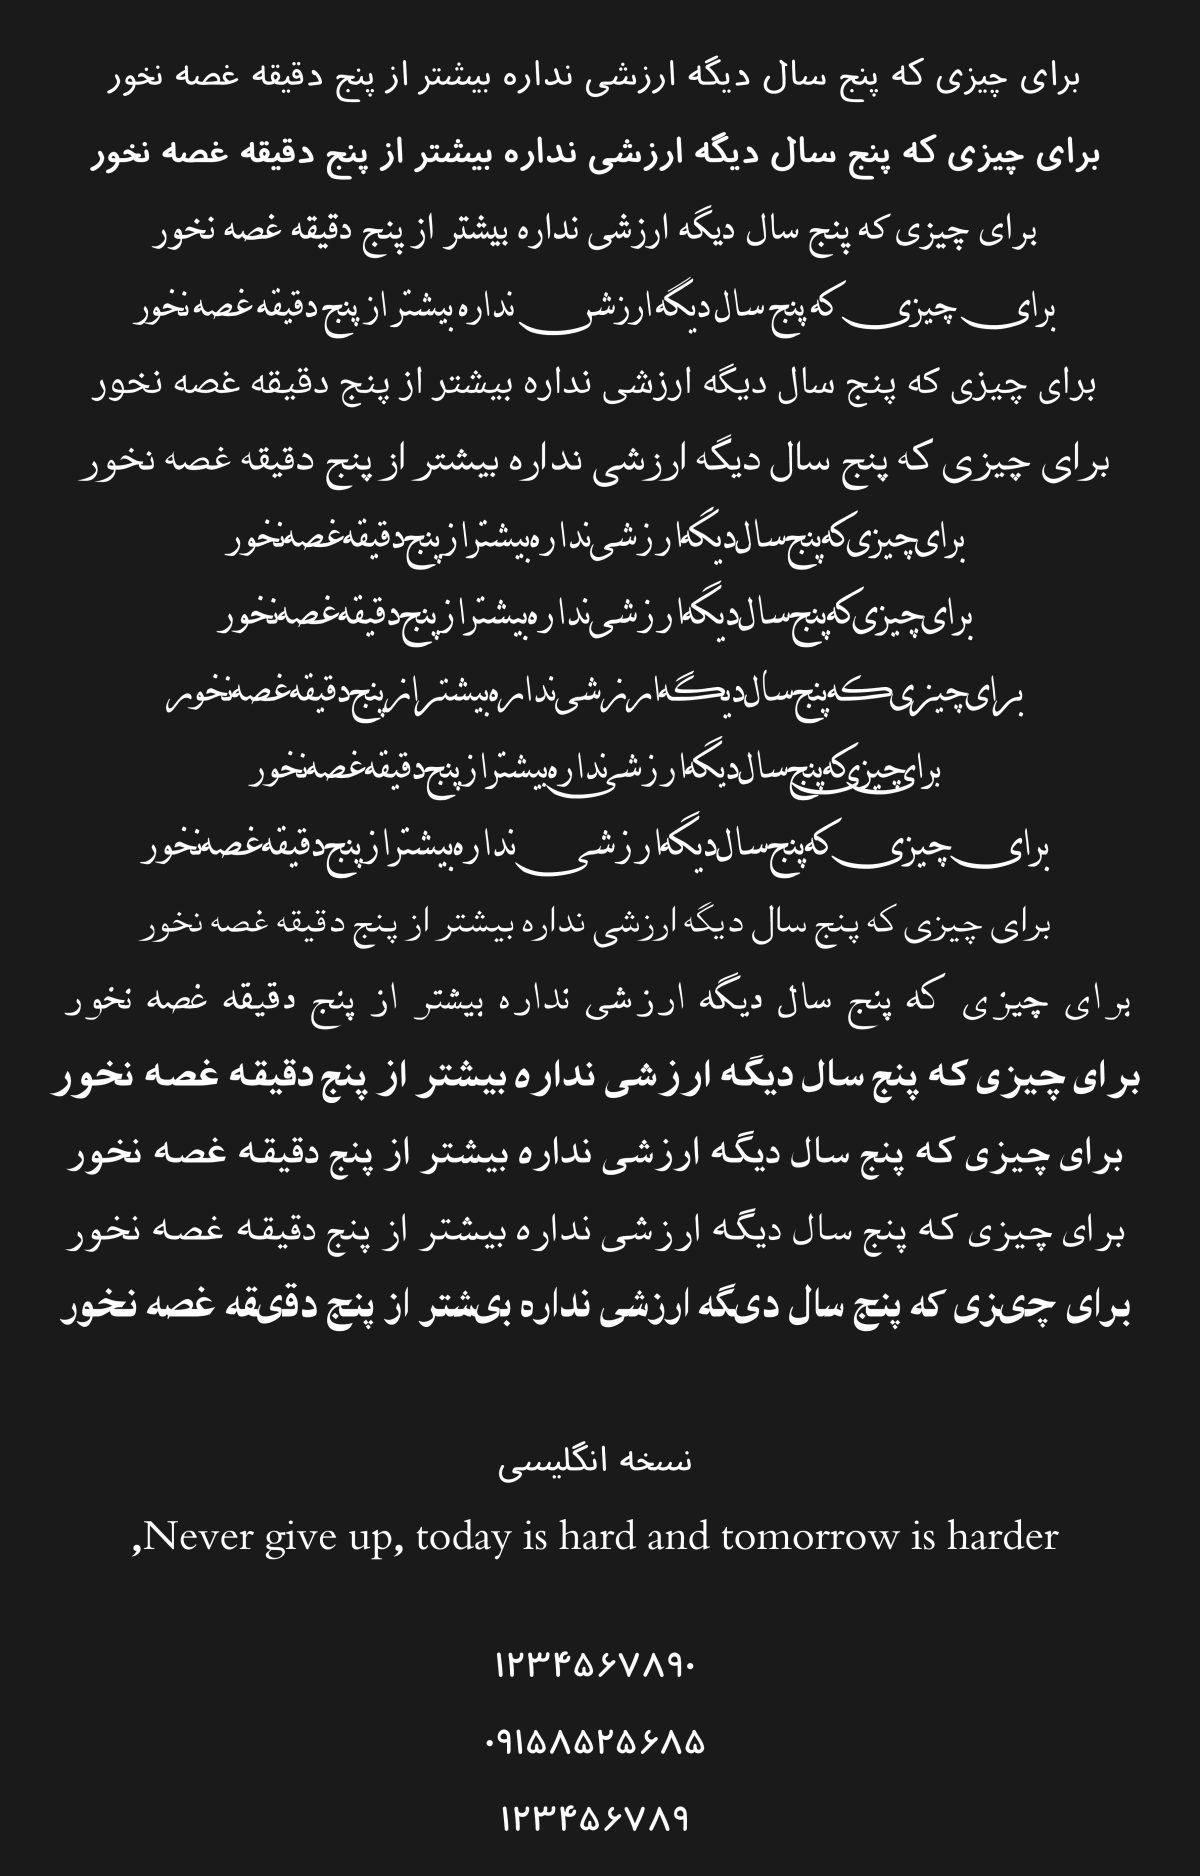 برای چیزی که پنج سال دیگه ارزشی نداره بیشتر از پنج دقیقه غصه نخور
برای چیزی که پنج سال دیگه ارزشی نداره بیشتر از پنج دقیقه غصه نخور
برای چیزی که پنج سال دیگه ارزشی نداره بیشتر از پنج دقیقه غصه نخور
برای چیزی که پنج سال دیگه ارزشی نداره بیشتر از پنج دقیقه غصه نخور
برای چیزی که پنج سال دیگه ارزشی نداره بیشتر از پنج دقیقه غصه نخور
برای چیزی که پنج سال دیگه ارزشی نداره بیشتر از پنج دقیقه غصه نخور
برای چیزی که پنج سال دیگه ارزشی نداره بیشتر از پنج دقیقه غصه نخور
برای چیزی که پنج سال دیگه ارزشی نداره بیشتر از پنج دقیقه غصه نخور
برای چیزی که پنج سال دیگه ارزشی نداره بیشتر از پنج دقیقه غصه نخور
برای چیزی که پنج سال دیگه ارزشی نداره بیشتر از پنج دقیقه غصه نخور
برای چیزی که پنج سال دیگه ارزشی نداره بیشتر از پنج دقیقه غصه نخور
برای چیزی که پنج سال دیگه ارزشی نداره بیشتر از پنج دقیقه غصه نخور
برای چیزی که پنج سال دیگه ارزشی نداره بیشتر از پنج دقیقه غصه نخور
برای چیزی که پنج سال دیگه ارزشی نداره بیشتر از پنج دقیقه غصه نخور
برای چیزی که پنج سال دیگه ارزشی نداره بیشتر از پنج دقیقه غصه نخور
برای چیزی که پنج سال دیگه ارزشی نداره بیشتر از پنج دقیقه غصه نخور
برای چیزی که پنج سال دیگه ارزشی نداره بیشتر از پنج دقیقه غصه نخور
نسخه انگلیسی
,Never give up, today is hard and tomorrow is harder
۱۲۳۴۵۶۷۸۹۰
۰۹۱۵۸۵۲۵۶۸۵
۱۲۳۴۵۶۷۸۹